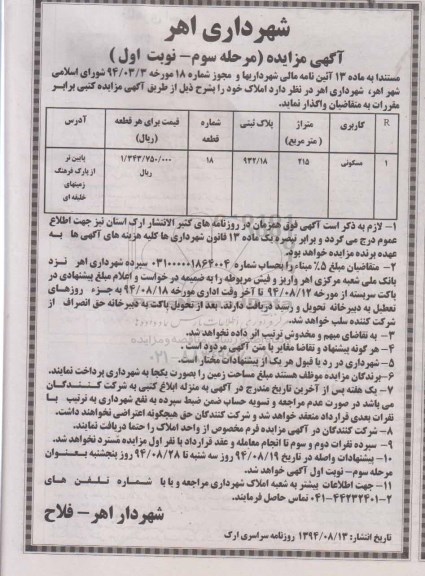 شهرداری اهر
آگهی مزایده (مرحله سوم- نوبت اول)
مستندا به ماده ۱۳ آئین نامه مالی شهرداریها و مجوز شماره ۱۸ مورخه ۹۴/۰۳/۳ شورای اسلامی
شهر اهر، شهرداری اهر در نظر دارد املاک خود را بشرح ذیل از طریق آگهی مزایده کتبی برابر
مقررات به متقاضیان واگذار نماید.
R کاربری متراژ (متر مربع) پلاک ثبتی شماره قطعه قیمت برای هر قطعه (ریال) آدرس
۱ مسکونی ۲۱۵ ۹۳۲/۱۸ ۱۸ ۱/۳۴۳/۷۵۰/۰۰۰ ریال پایین تر از پارک فرهنگ زمینهای خلیفه ای
۱- لازم به ذکر است آگهی فوق همزمان در روزنامه های کثیر الانتشار ارک استان نیز جهت اطلاع
عموم درج می گردد و برابر تبصره یک ماده ۱۳ قانون شهرداری ها کلیه هزینه های آگهی ها به
عهده برنده مزایده خواهد بود.
۲- متقاضیان مبلغ ۵٪ مبناء را بحساب شماره ۰۳۱۰۰۰۰۰۱۸۶۴۰۰۴ سپرده شهرداری اهر نزد
بانک ملی شعبه مرکزی اهر واریز و فیش مربوطه را به ضمیمه در خواست و اعلام مبلغ پیشنهادی در
پاکت سربسته از مورخه ۹۴/۰۸/۱۳ تا آخر وقت اداری مورخه ۹۴/۰۸/۱۸ به جزء روزهای
تعطیل به دبیرخانه تحویل و رسید دریافت دارند. بعد از تحویل پاکت به دبیرخانه حق انصراف از
شرکت کننده سلب خواهد شد.
۳- به تقاضای مبهم و مخدوش ترتیب اثر داده نخواهد شد.
۴- هر گونه پیشنهاد و تقاضا مغایر با متن آگهی مردود است.
۵- شهرداری در رد یا قبول هر یک از پیشنهادات مختار است.
۶- برندگان مزایده موظف هستند مبلغ مساحت زمین را بصورت یکجا به شهرداری پرداخت نمایند.
۷- یک هفته پس از آخرین تاریخ مندرج در آگهی به منزله ابلاغ کتبی به شرکت کنندگان
می باشد در صورت عدم مراجعه و تسویه حساب ضمن ضبط سپرده به نفع شهرداری به ترتیب با
نفرات بعدی قرارداد منعقد خواهد شد و شرکت کنندگان حق هیچگونه اعتراضی نخواهند داشت.
۸- شرکت کنندگان در آگهی مزایده فرم مخصوص از واحد املاک را حتما دریافت نمایند.
۹- سپرده نفرات دوم و سوم تا انجام معامله و عقد قرارداد با نفر اول مزایده مسترد نخواهد شد.
۱۰- پیشنهادات واصله در تاریخ ۹۴/۰۸/۱۹ روز سه شنبه تا ۹۴/۰۸/۲۸ روز پنجشنبه بعنوان
مرحله سوم- نوبت اول آگهی خواهد شد.
۱۱- جهت اطلاعات بیشتر به شعبه املاک شهرداری مراجعه و یا با شماره تلفن های
۰۴۱-۴۴۲۳۲۴۰۱-۲ تماس حاصل فرمایند.
شهردار اهر- فلاح
تاریخ انتشار: ۱۳۹۴/۰۸/۱۳ روزنامه سراسری ارک